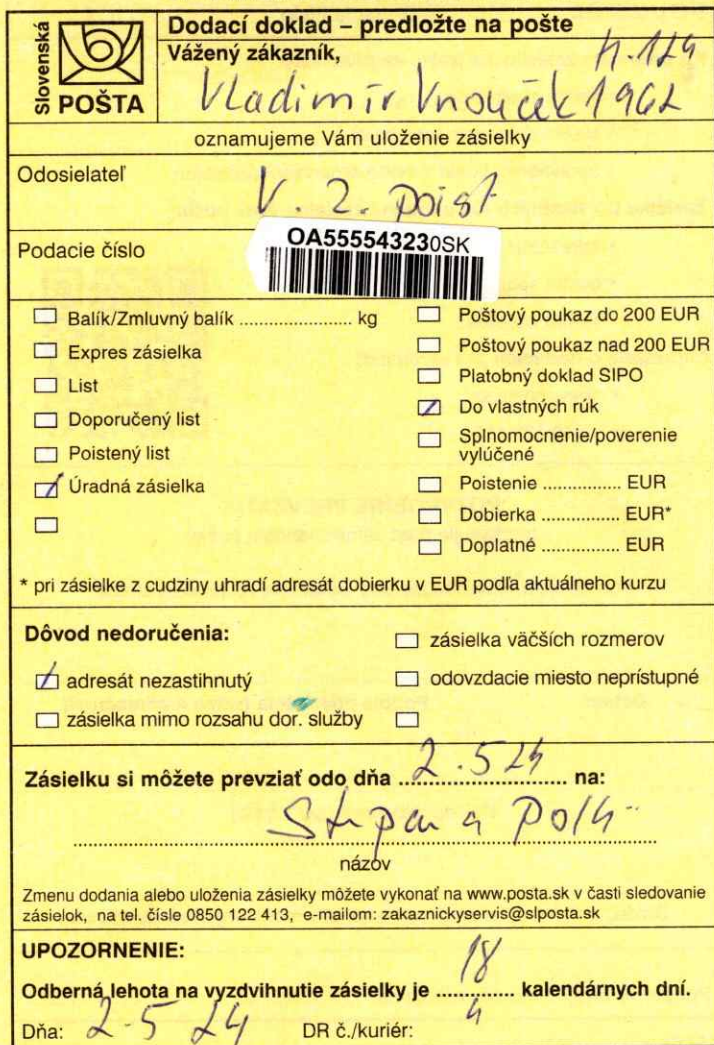 Slovenská
POŠTA
Dodací doklad – predložte na pošte
Vážený zákazník,
Vladimír Vnouček 1962
oznamujeme Vám uloženie zásielky
Odosielateľ
V. 2. poist
Podacie číslo
OA555543230SK
Balík/Zmluvný balík .................... kg
Expres zásielka
List
Doporučený list
Poistený list
Úradná zásielka
Poštový poukaz do 200 EUR
Poštový poukaz nad 200 EUR
Platobný doklad SIPO
Do vlastných rúk
Splnomocnenie/poverenie
vylúčené
Poistenie .............. EUR
Dobierka .............. EUR*
Doplatné .............. EUR
* pri zásielke z cudziny uhradí adresát dobierku v EUR podľa aktuálneho kurzu
Dôvod nedoručenia:
zásielka väčších rozmerov
adresát nezastihnutý
odovzdacie miesto neprístupné
zásielka mimo rozsahu dor. služby
Zásielku si môžete prevziať odo dňa 2.5 24 na:
názov
Zmenu dodania alebo uloženia zásielky môžete vykonať na www.posta.sk v časti sledovanie
zásielok, na tel. čísle 0850 122 413, e-mailom: zakaznickyservis@slposta.sk
UPOZORNENIE:
Odberná lehota na vyzdvihnutie zásielky je 18 kalendárnych dní.
Dňa: 2-5 24 DR č./kuriér: 4